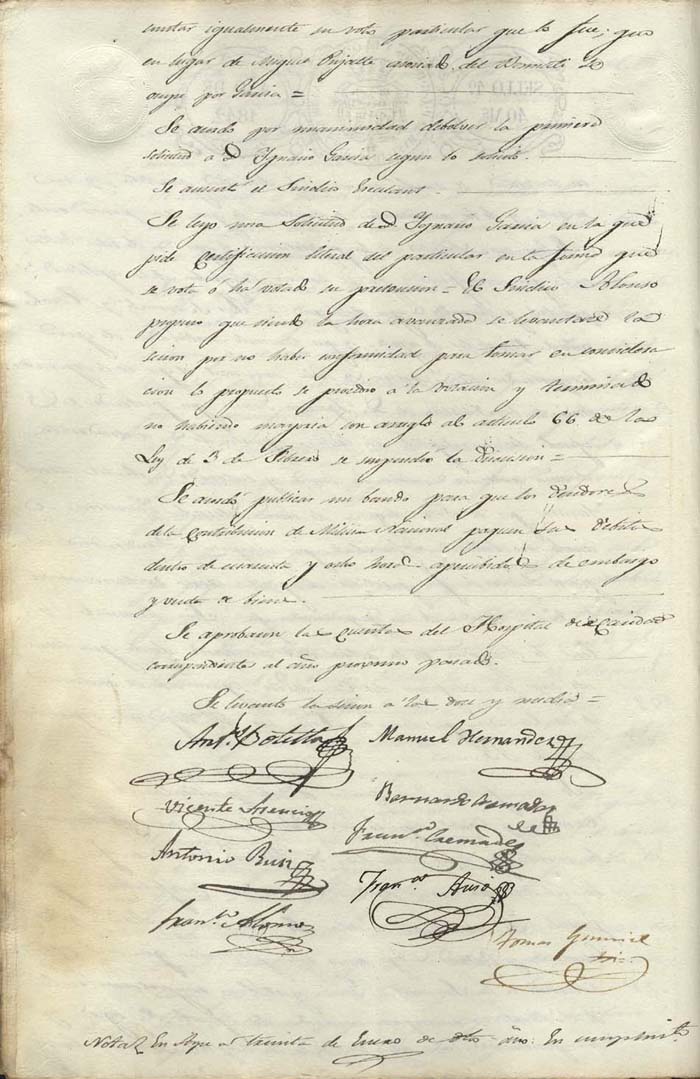 igualmente su voto particular que lo fue; que
en lugar de Miguel del
por Garcia =
Se acordó por unanimidad debolver la primera
solicitud a D Ignacio Garcia segun lo
Se ausentó el Sindico
Se leyo una Solicitud de D Ignacio Garcia en la que
pide Certificacion literal del particular en la que
se votó ó há votado su pretencion = El Sindico Alonso
propuso que siendo la hora avanzada se levantase la
secion por no haber conformidad para tomar en considera
cion lo propuesto se procedio á la votacion y terminada
no habiendo mayoria con arreglo al articulo 66 de la
Ley de 3 de Febrero se suspendió la discusion =
Se acordó publicar un bando para que los deudores
de la Contribucion de Milicia Nacional paguen sus debitos
dentro de cuarenta y ocho horas apercibidos de embargo
y venta de bienes.
Se aprobaron las cuentas del Hospital de Caridad
correspondientes al año proximo pasado.
Se levantó la secion a las doce y media =
Manuel Hernandez
Vicente Asencio
Bernardo
Franco
Antonio
Franco
Franco Alonso
Tomas
Nota En a treinta de Enero de dho año: En